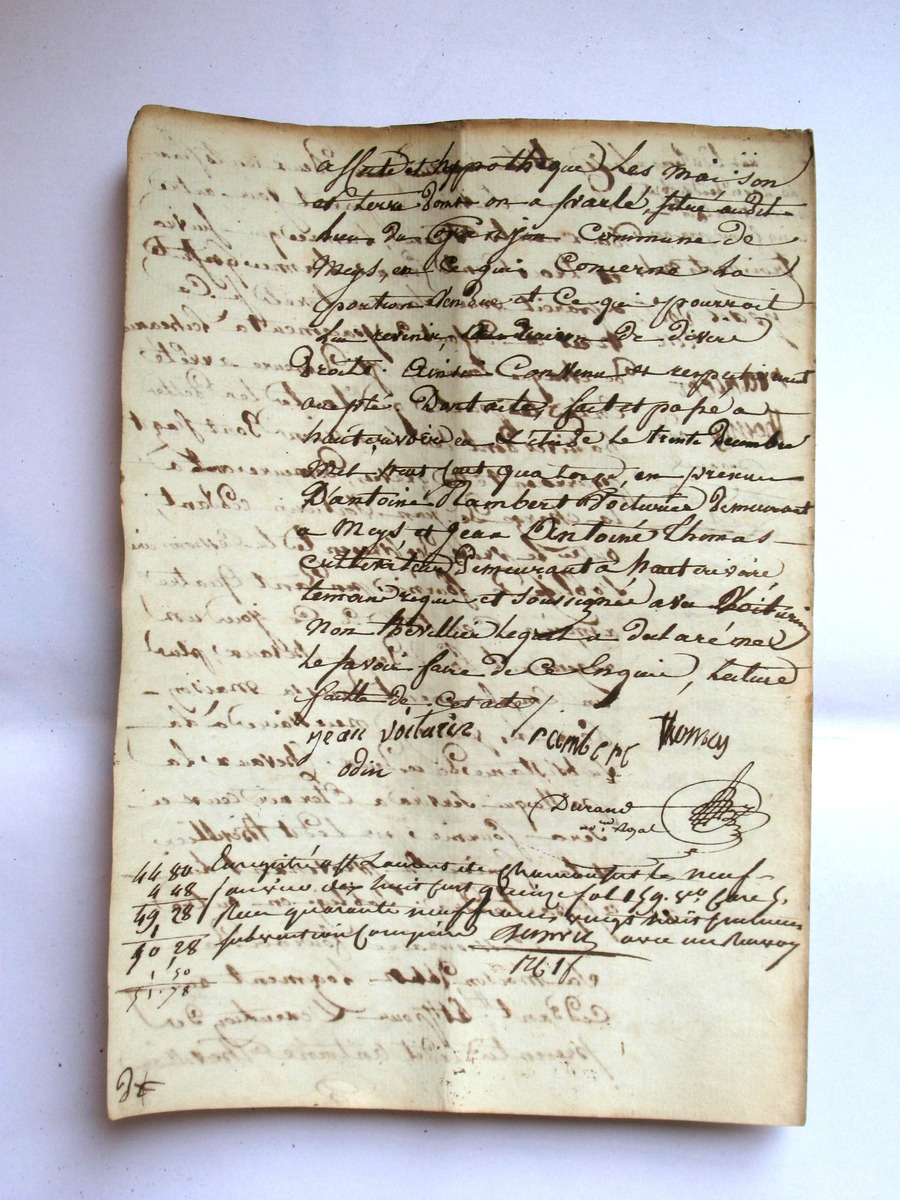 affecté et hypothequé les maison
et terre dont on a parlé, situé audit
lieu du commune de
Meys, en ce qui concerne la
portion vendue et ce qui pourroit
lui revenir de divers
droits. ainsi convenu et respectivement
accepté. Dont acte, fait et passé a
hauterivoire en l'étude le trente Decembre
Mil huit cent quatorze, en presence
D'antoine Rambert demeurant
a Meys et Jean Antoine Thomas
cultivateur demeurant a hauterivoire
temoins requis et soussignés avec Voiturin
non lequel a declaré ne
le savoir faire de ce enquis, lecture
faitte de cet acte /
jean voiturin rambert Thomas
odin
Durand
Royal
44 80 Enregistré a St Laurent de Chamousset le neuf
4 48 janvier dix huit cent quinze fol 159. Vo Case 5.
49 28 Reçu quarante neuf francs vingt huit centimes
1
50 28 subvention comprise avec un Renvoy
1 50
51.78